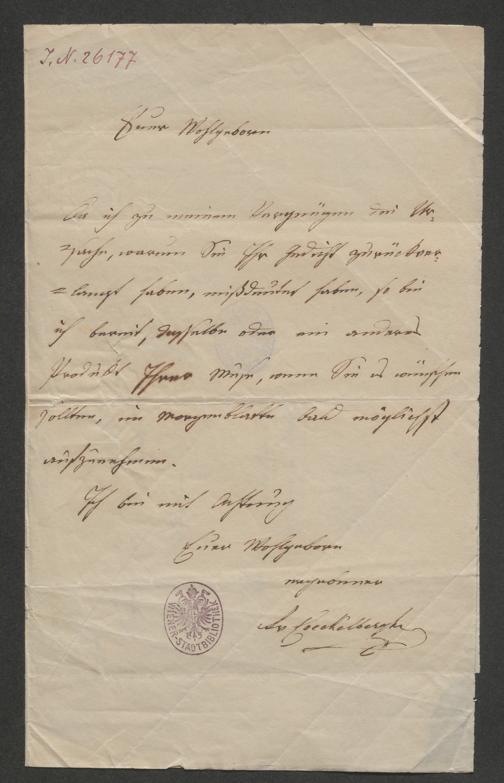 I. N. 26177
Euer Wohlgeboren
Da ich zu meinem Vergnügen die Ur-
sache, warum Sie Ihr Gedicht zurückver-
=langt haben, mißdeutet habe, so bin
ich bereit, dasselbe oder ein anderes
Produkt Ihrer Muse, wenn Sie es wünschen
sollten, im Morgenblatte bald möglichst
aufzunehmen.
Ich bin mit Achtung
Euer Wohlgeboren
ergebener
Coeckelberghe
WIENER-STADTBIBLIOTHEK